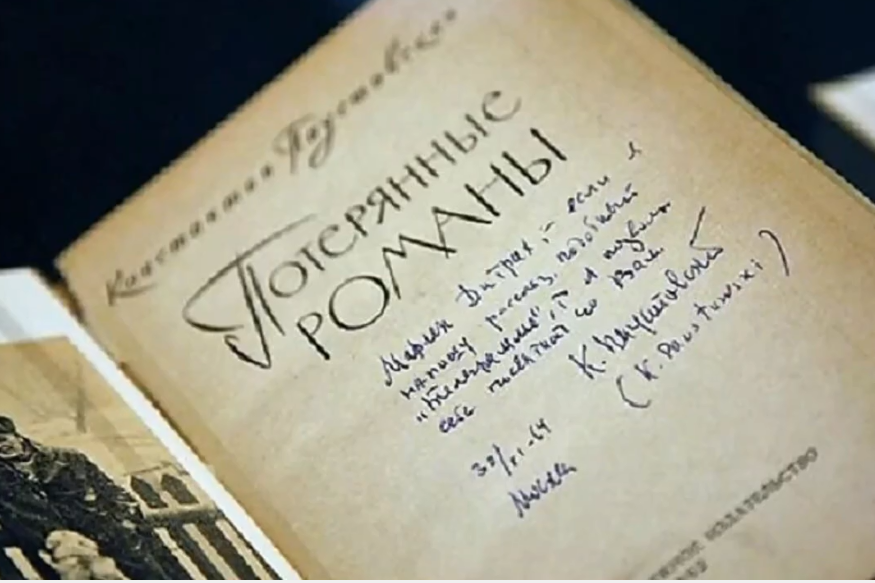 Константин Паустовский
Потерянные
РОМАНЫ
Марлен Дитрих – если я
напишу рассказ, подобный
"Телеграмме", то я позволю
себе посвятить его Вам.
К. Паустовский
(K. Paustowski)
Москва
ИЗДАТЕЛЬСТВО